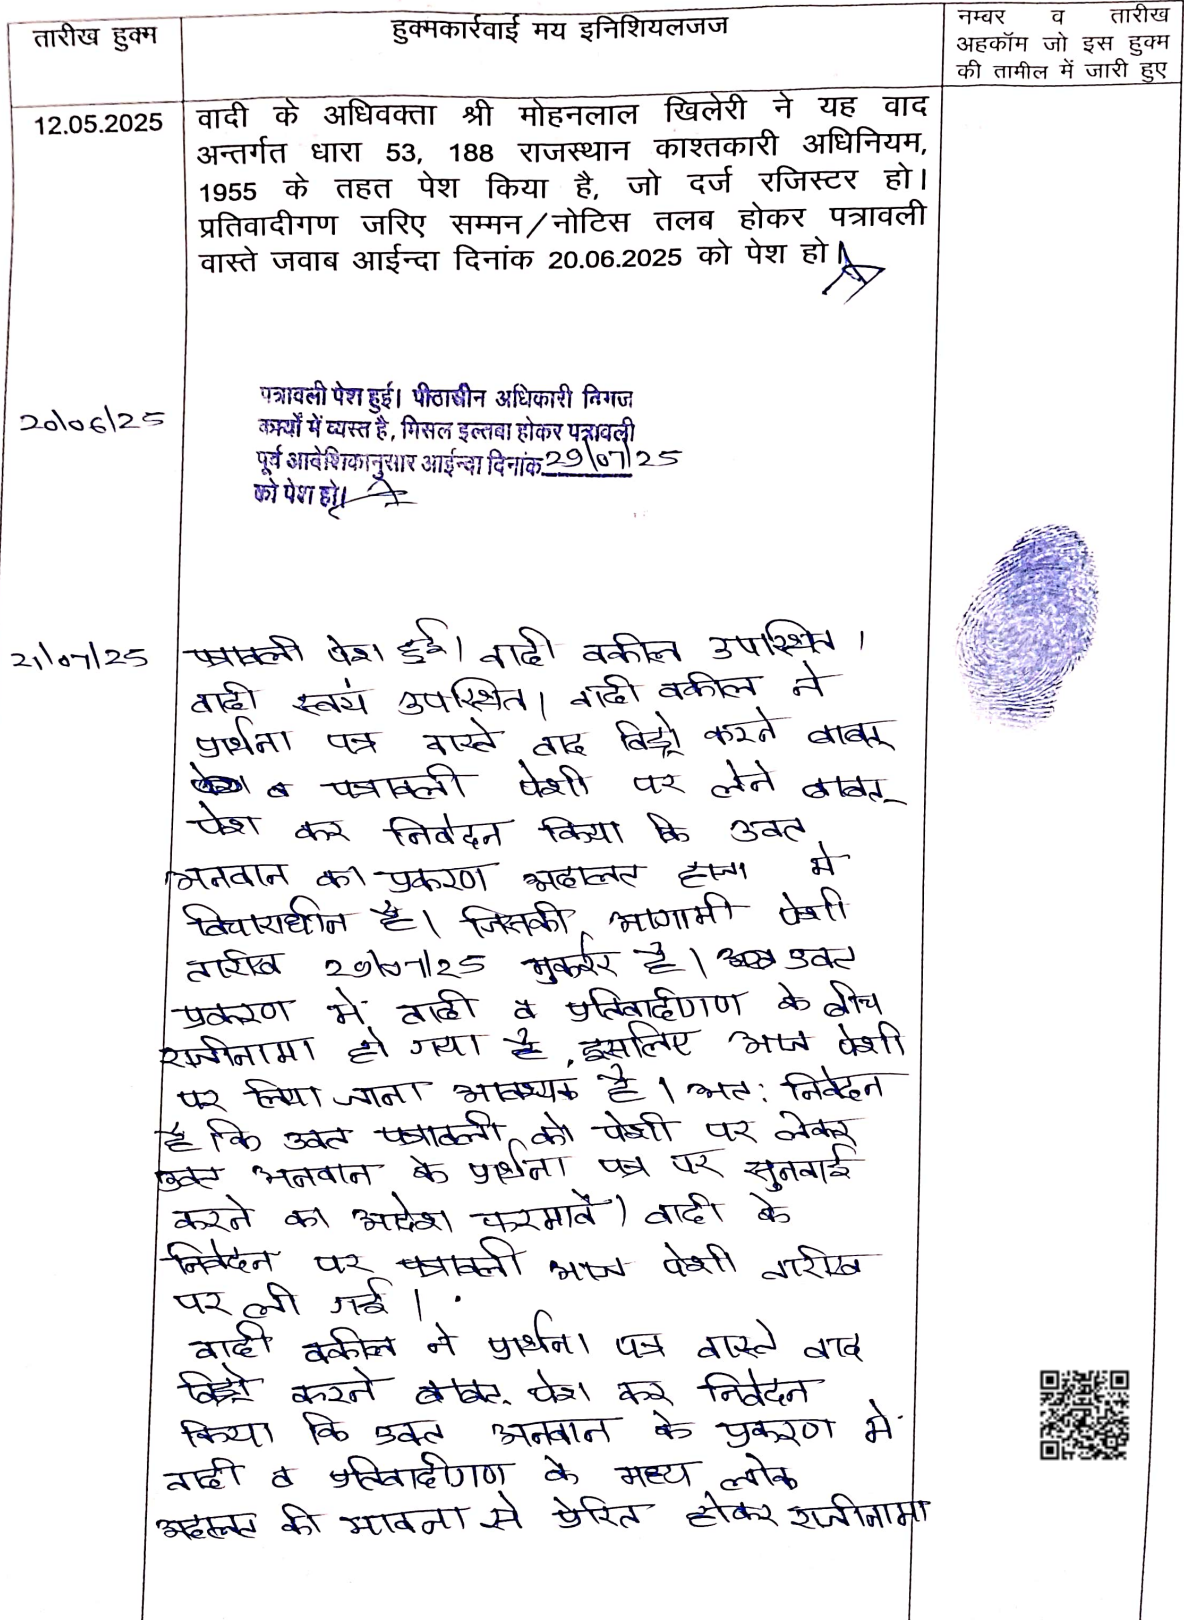 तारीख हुक्म
हुक्मकार्रवाई मय इनिशियलजज
नम्बर व तारीख
अहकॉम जो इस हुक्म
की तामील में जारी हुए
12.05.2025
वादी के अधिवक्ता श्री मोहनलाल खिलेरी ने यह वाद
अन्तर्गत धारा 53, 188 राजस्थान काश्तकारी अधिनियम,
1955 के तहत पेश किया है, जो दर्ज रजिस्टर हो।
प्रतिवादीगण जरिए सम्मन/नोटिस तलब होकर पत्रावली
वास्ते जवाब आईन्दा दिनांक 20.06.2025 को पेश हो।
20/06/25
पत्रावली पेश हुई। पीठाधीन अधिकारी निगज
कार्यों में व्यस्त है, मिसल इल्तबा होकर पत्रावली
पूर्व आदेशिकानुसार आईन्दा दिनांक 29/07/25
को पेश हो।
21/07/25
पत्रावली पेश हुई। वादी वकील उपस्थित।
वादी स्वयं उपस्थित। वादी वकील ने
प्रार्थना पत्र वास्ते वाद विड्रो करने बाबत्
व पत्रावली पेशी पर लेने बाबत्
पेश कर निवेदन किया कि उक्त
अनवान का प्रकरण अदालत हाजा मे
विचाराधीन है। जिसकी आगामी पेशी
तारीख 29/07/25 मुकर्रर है। उक्त
प्रकरण मे वादी व प्रतिवादीगण के बीच
राजीनामा हो गया है, इसलिए आज पेशी
पर लिया जाना आवश्यक है। अत: निवेदन
है कि उक्त पत्रावली को पेशी पर लेकर
उक्त अनवान के प्रार्थना पत्र पर सुनवाई
करने का आदेश फरमावें। वादी के
निवेदन पर पत्रावली आज पेशी तारीख
पर ली गई।
वादी वकील ने प्रार्थना पत्र वास्ते वाद
विड्रो करने बाबत् पेश कर निवेदन
किया कि उक्त अनवान के प्रकरण मे
वादी व प्रतिवादीगण के मध्य लोक
अदालत की भावना से प्रेरित होकर राजीनामा